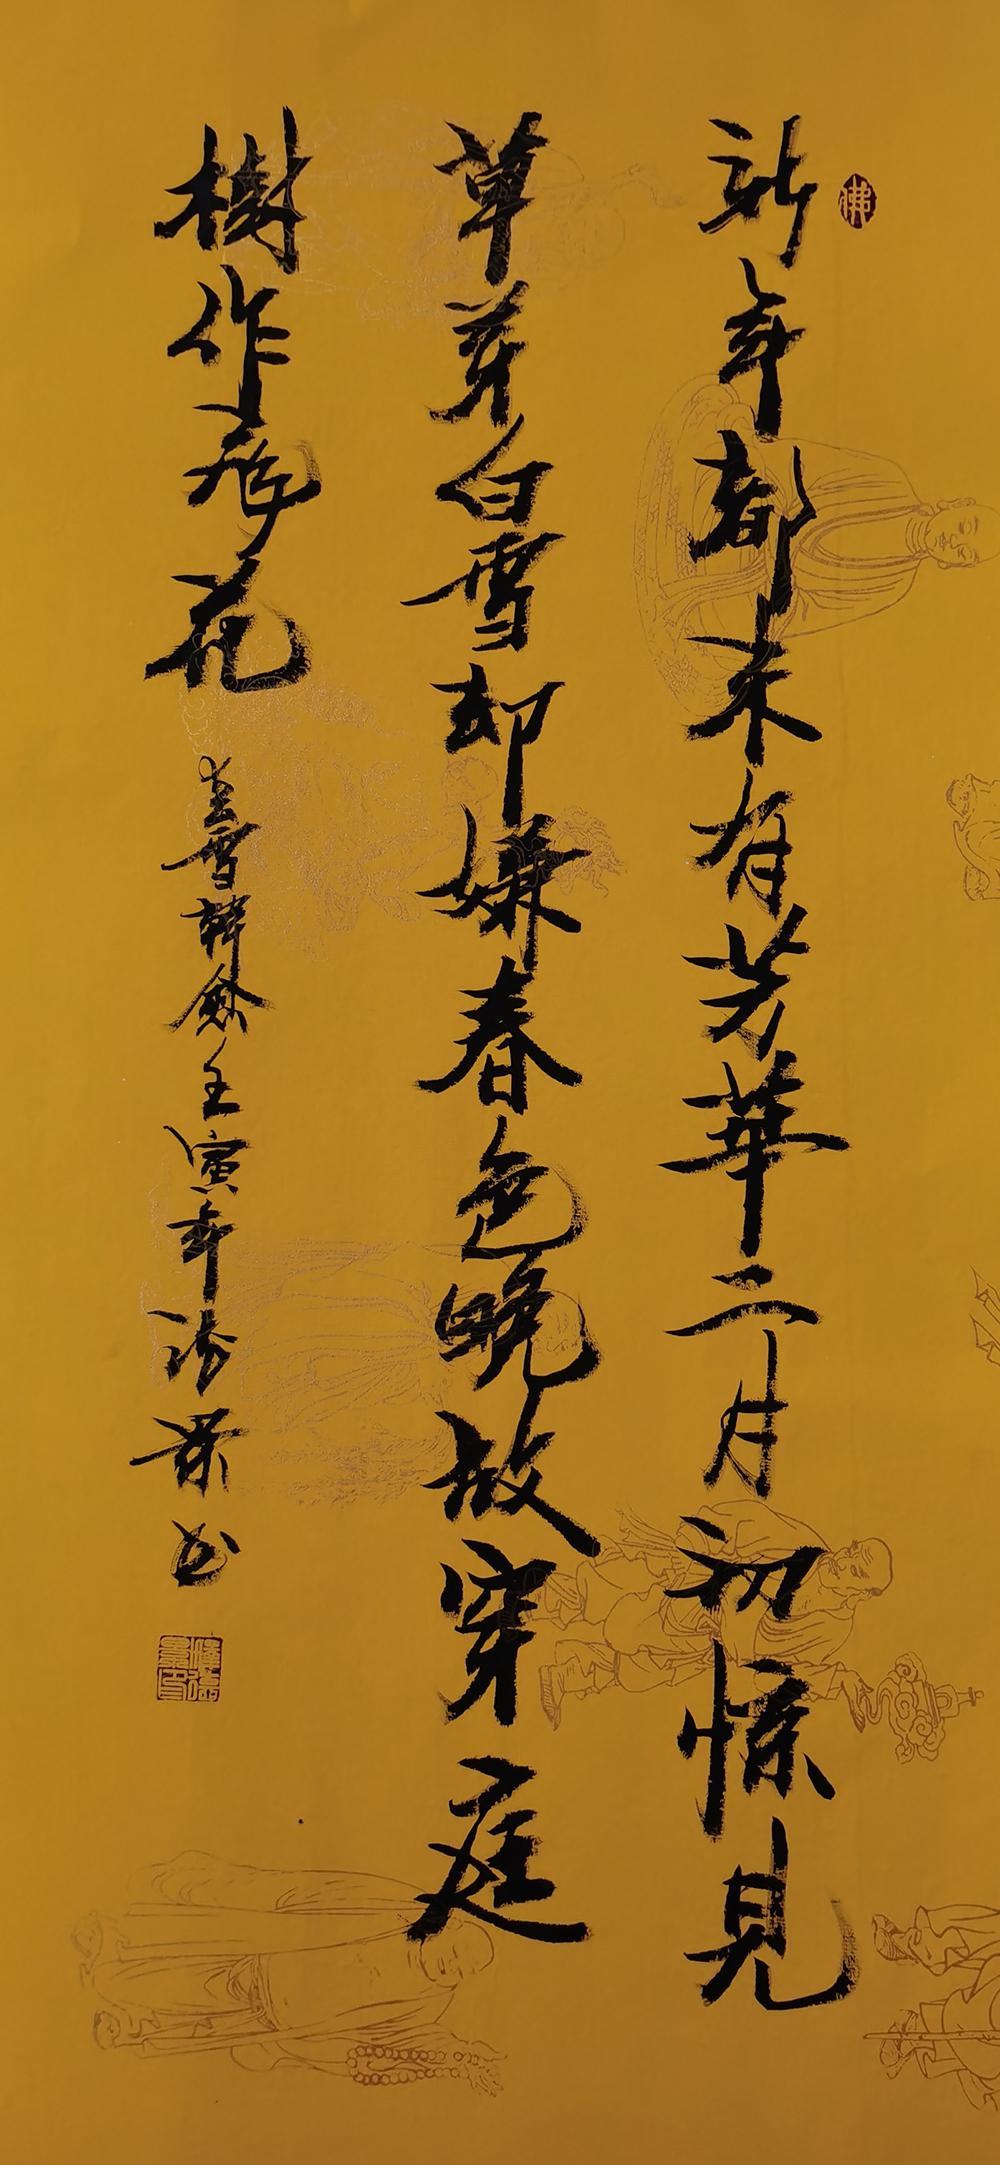 新年都未有芳華二月初惊見
草芽白雪却嫌春色晚故穿庭
樹作飛花
春雪韓愈壬寅年
書
佛